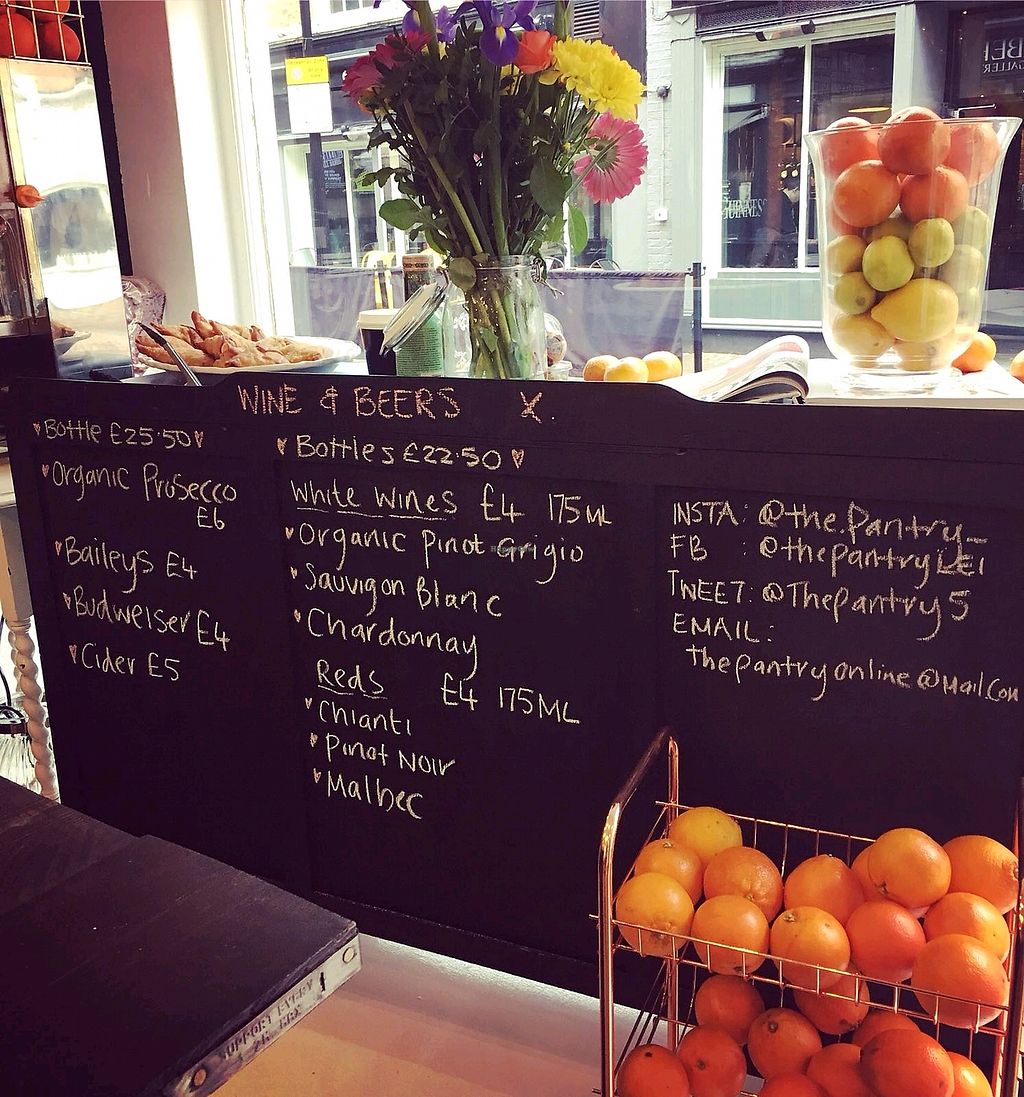 WINE & BEERS X.
Bottle £25.50
Organic Prosecco
£6
Baileys £4
Budweiser £4
Cider £5
Bottles £22.50
White Wines £4 175ML
Organic Pinot Grigio
Sauvigon Blanc
Chardonnay
Reds £4 175ML
Chianti
Pinot Noir
Malbec
INSTA: @the.pantry_
FB : @thepantryLE1
TWEET: @Thepantry5
EMAIL:
thepantryonline@mail.com
SUPPORT EVERY